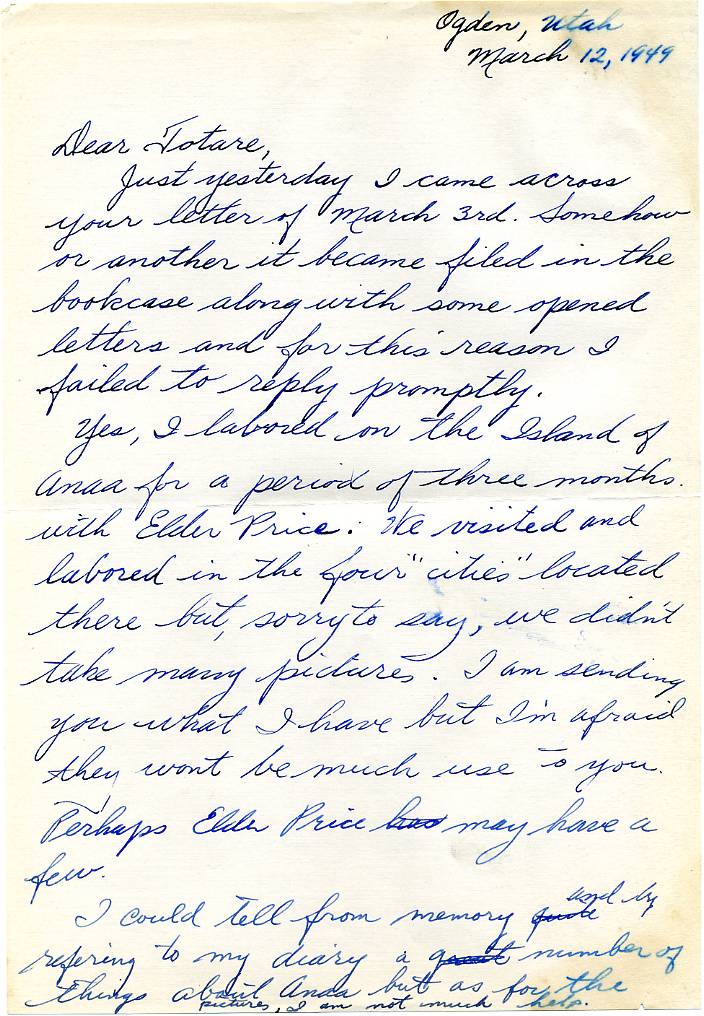 Ogden, Utah
March 12, 1949
Dear Totare,
Just yesterday I came across
your letter of March 3rd. Somehow
or another it became filed in the
bookcase along with some opened
letters and for this reason I
failed to reply promptly.
Yes, I labored on the Island of
Anaa for a period of three months.
with Elder Price. We visited and
labored in the four "cities" located
there but, sorry to say, we didn't
take many pictures. I am sending
you what I have but I'm afraid
they wont be much use to you.
Perhaps Elder Price has may have a
few.
I could tell from memory and by
refering to my diary a great number of
things about Anaa but as for the
pictures, I am not much help.